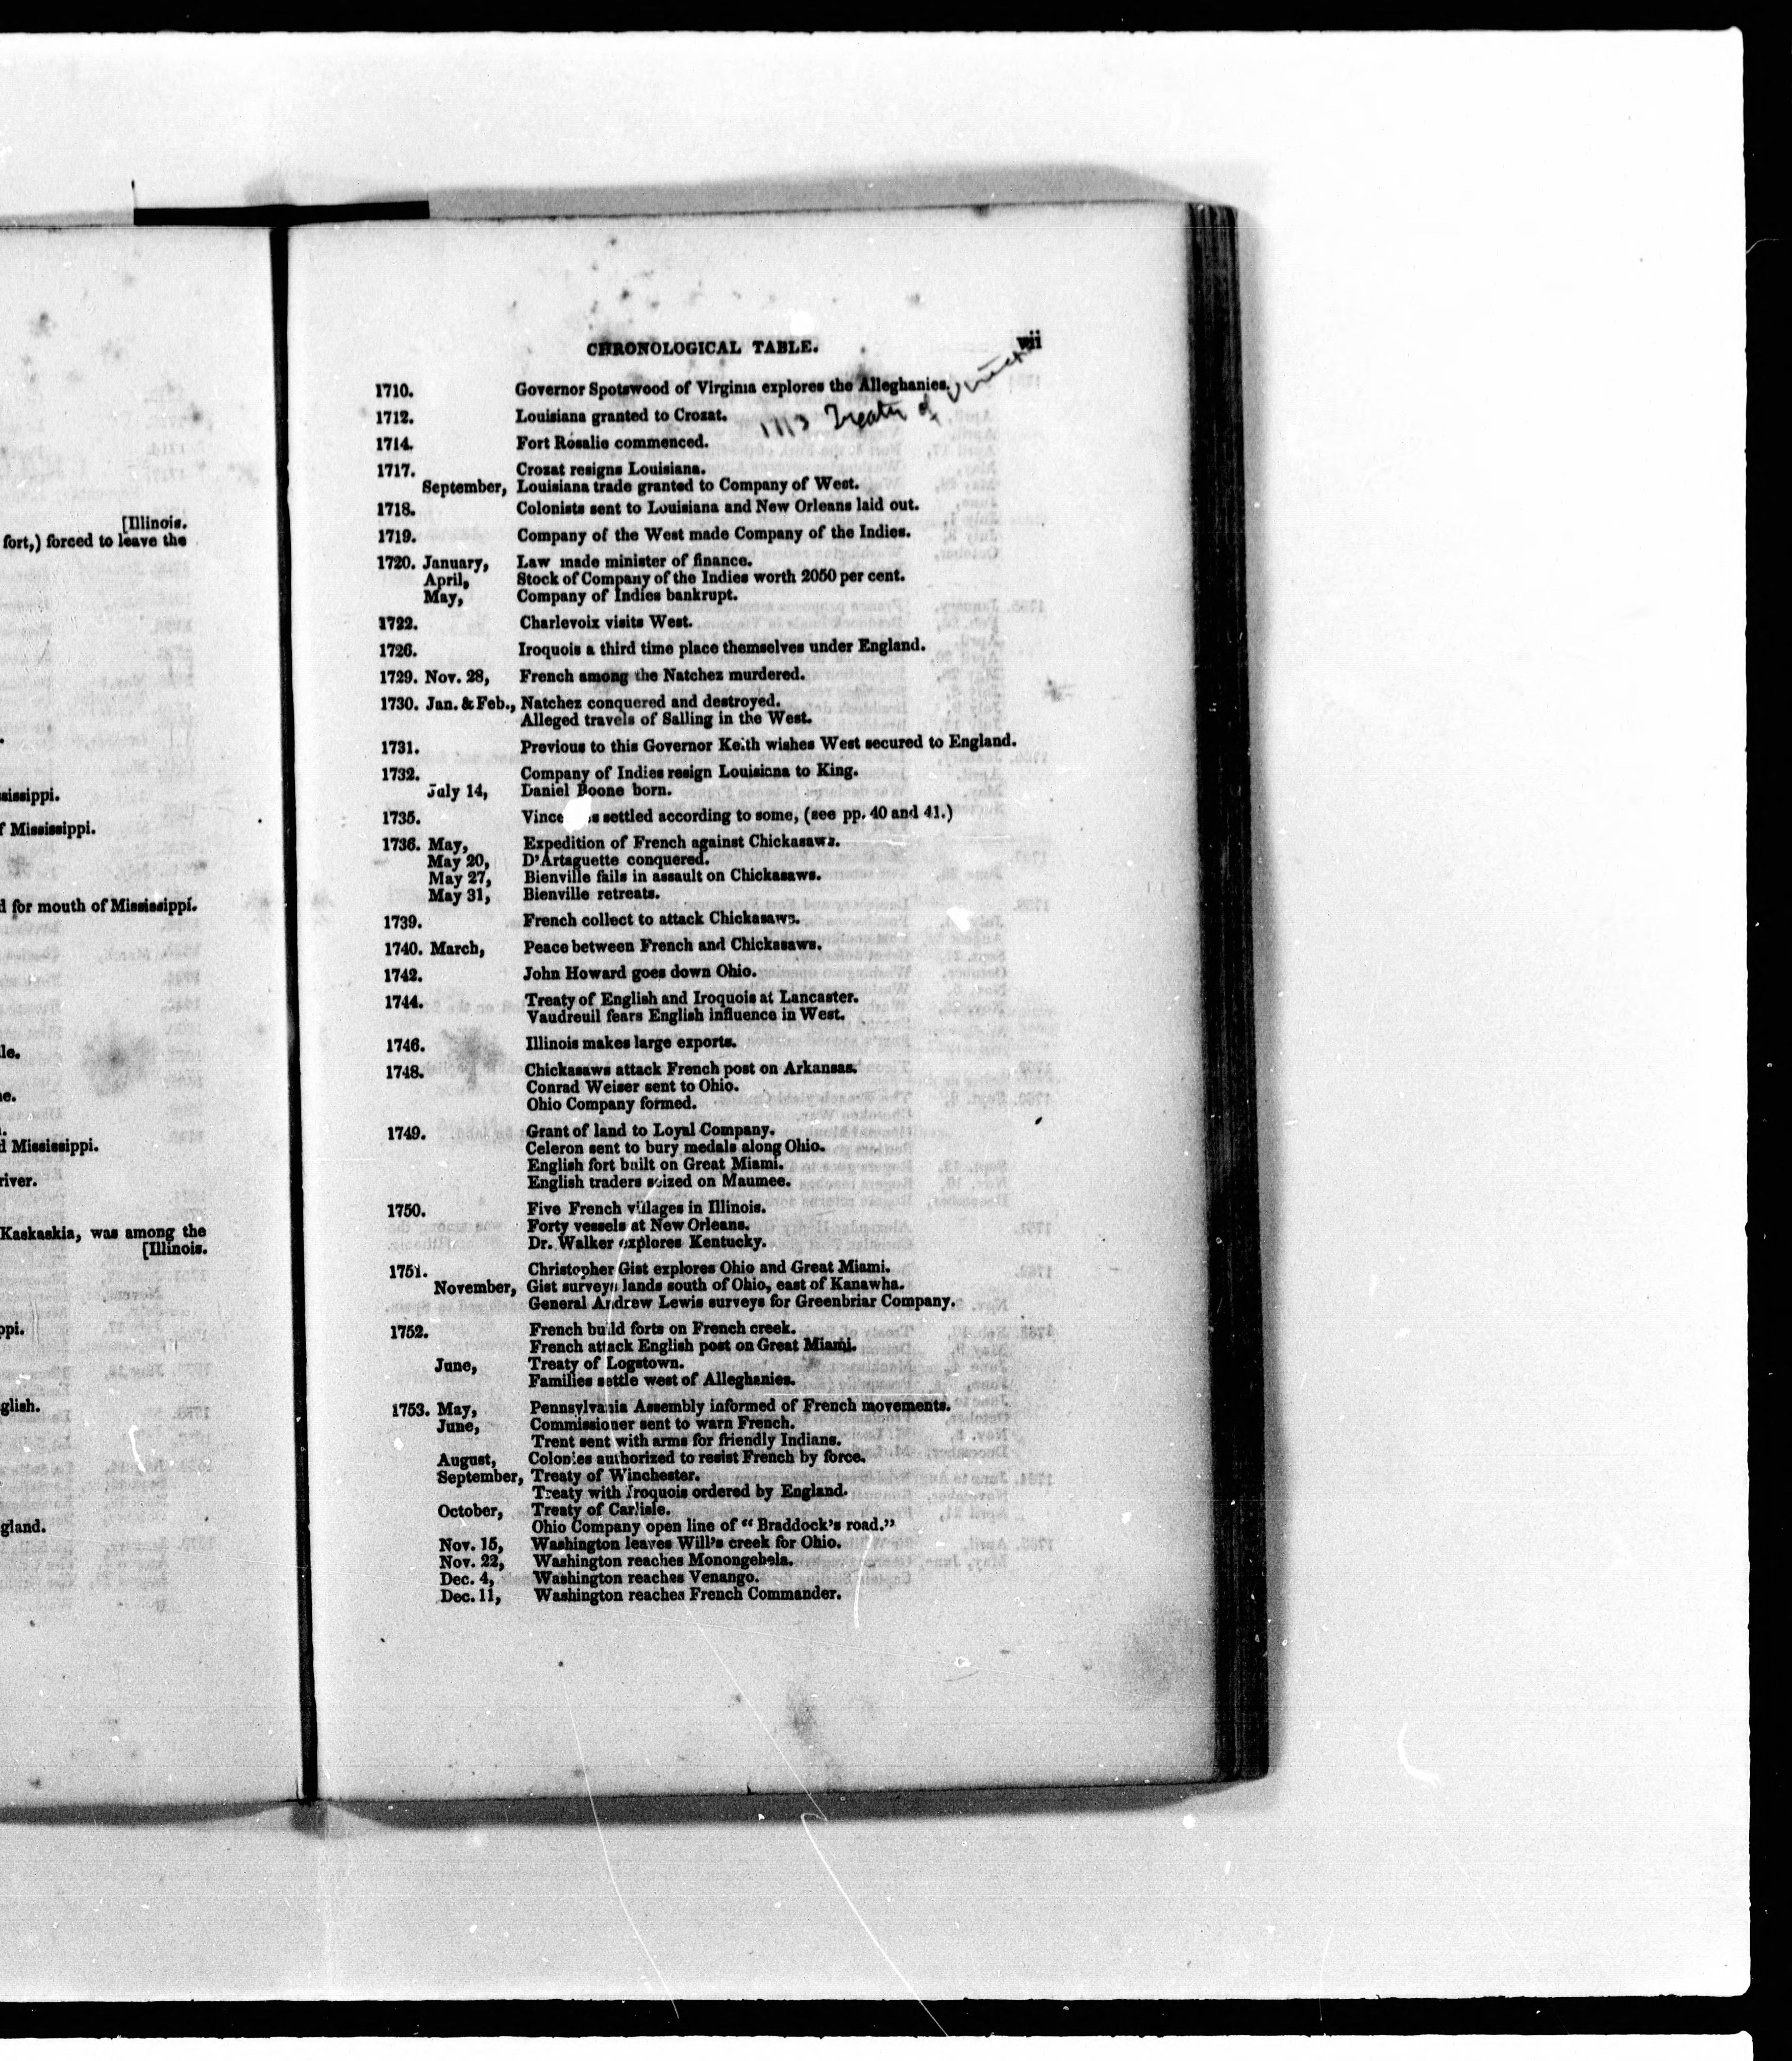 [Illinois.
fort,) forced to leave the
sissippi.
f Mississippi.
d for mouth of Mississippi.
le.
ne.
d Mississippi.
river.
Kaskaskia, was among the
[Illinois.
ppi.
glish.
gland.
CHRONOLOGICAL TABLE. vii
1710. Governor Spotswood of Virginia explores the Alleghanies.
1713 Treaty of
1712. Louisiana granted to Crozat.
1714. Fort Rosalie commenced.
1717. Crozat resigns Louisiana.
September, Louisiana trade granted to Company of West.
1718. Colonists sent to Louisiana and New Orleans laid out.
1719. Company of the West made Company of the Indies.
1720. January, Law made minister of finance.
April, Stock of Company of the Indies worth 2050 per cent.
May, Company of Indies bankrupt.
1722. Charlevoix visits West.
1726. Iroquois a third time place themselves under England.
1729. Nov. 28, French among the Natchez murdered.
1730. Jan. & Feb., Natchez conquered and destroyed.
Alleged travels of Salling in the West.
1731. Previous to this Governor Keith wishes West secured to England.
1732. Company of Indies resign Louisiana to King.
July 14, Daniel Boone born.
1735. settled according to some, (see pp. 40 and 41.)
1736. May, Expedition of French against Chickasaws.
May 20, D'Artaguette conquered.
May 27, Bienville fails in assault on Chickasaws.
May 31, Bienville retreats.
1739. French collect to attack Chickasaws.
1740. March, Peace between French and Chickasaws.
1742. John Howard goes down Ohio.
1744. Treaty of English and Iroquois at Lancaster.
Vaudreuil fears English influence in West.
1746. Illinois makes large exports.
1748. Chickasaws attack French post on Arkansas.
Conrad Weiser sent to Ohio.
Ohio Company formed.
1749. Grant of land to Loyal Company.
Celeron sent to bury medals along Ohio.
English fort built on Great Miami.
English traders seized on Maumee.
1750. Five French villages in Illinois.
Forty vessels at New Orleans.
Dr. Walker explores Kentucky.
1751. Christopher Gist explores Ohio and Great Miami.
November, Gist surveys lands south of Ohio, east of Kanawha.
General Andrew Lewis surveys for Greenbriar Company.
1752. French build forts on French creek.
French attack English post on Great Miami.
June, Treaty of Logstown.
Families settle west of Alleghanies.
1753. May, Pennsylvania Assembly informed of French movements.
June, Commissioner sent to warn French.
Trent sent with arms for friendly Indians.
August, Colonies authorized to resist French by force.
September, Treaty of Winchester.
Treaty with Iroquois ordered by England.
October, Treaty of Carlisle.
Ohio Company open line of "Braddock's road."
Nov. 15, Washington leaves Will's creek for Ohio.
Nov. 22, Washington reaches Monongehela.
Dec. 4, Washington reaches Venango.
Dec. 11, Washington reaches French Commander.